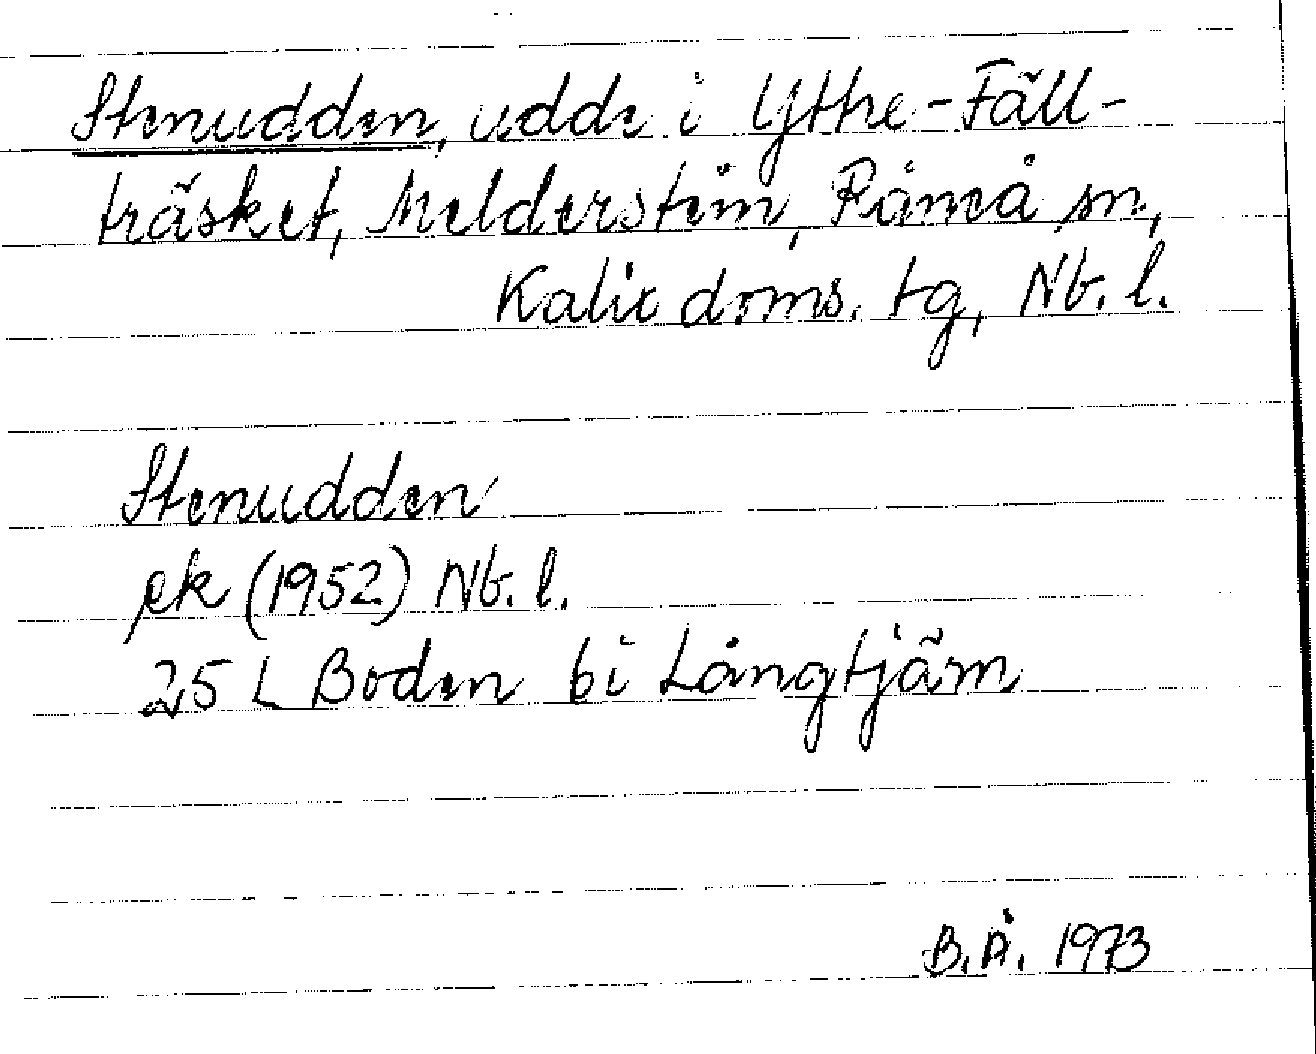 Stenudden, udde i Yttre-Fäll-
träsket, Melderstein, Råneå sn,
Kalix doms. tg, Nb. l.
Stenudden
ek (1952) Nb. l.
25 L Boden bi Långtjärn
B.Å. 1973